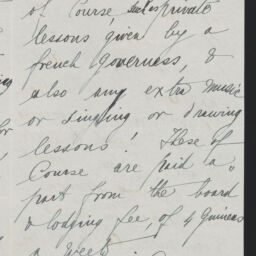 of Course, such as private
lessons given by a
french Governess, &
also any extra music
or singing or drawing
lessons! These of
Course are paid a„
part from the board
& lodging fee, of 4 Guineas
a week